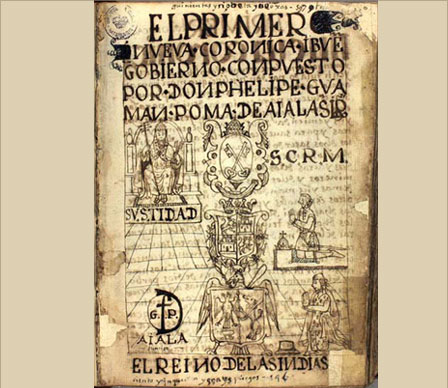 EL PRIMER
NVEVA·CORONICA·IBVE
GOBIERNO·CONPVESTO
POR·DON PHELIPE·GVA
MAN·POMA·DE AIALA S
S.C.R.M.
SV·S·TIDAD
G. P.
AIALA
EL REINO DE LAS INDIAS